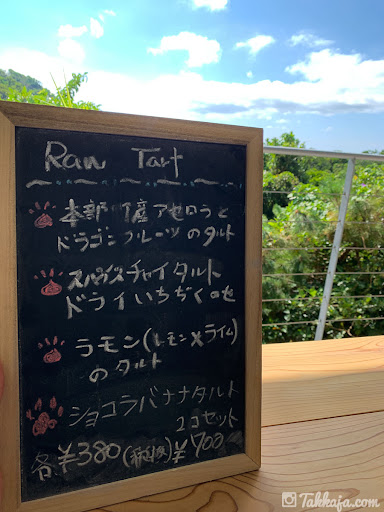 Raw Tart
本部産アセロラと
ドラゴンフルーツのタルト
スパイスチャイタルト
ドライいちぢくのせ
ラモン(レモン×ライム)
のタルト
ショコラバナナタルト
2コセット
各¥380(税抜)¥700
Takkaja.com